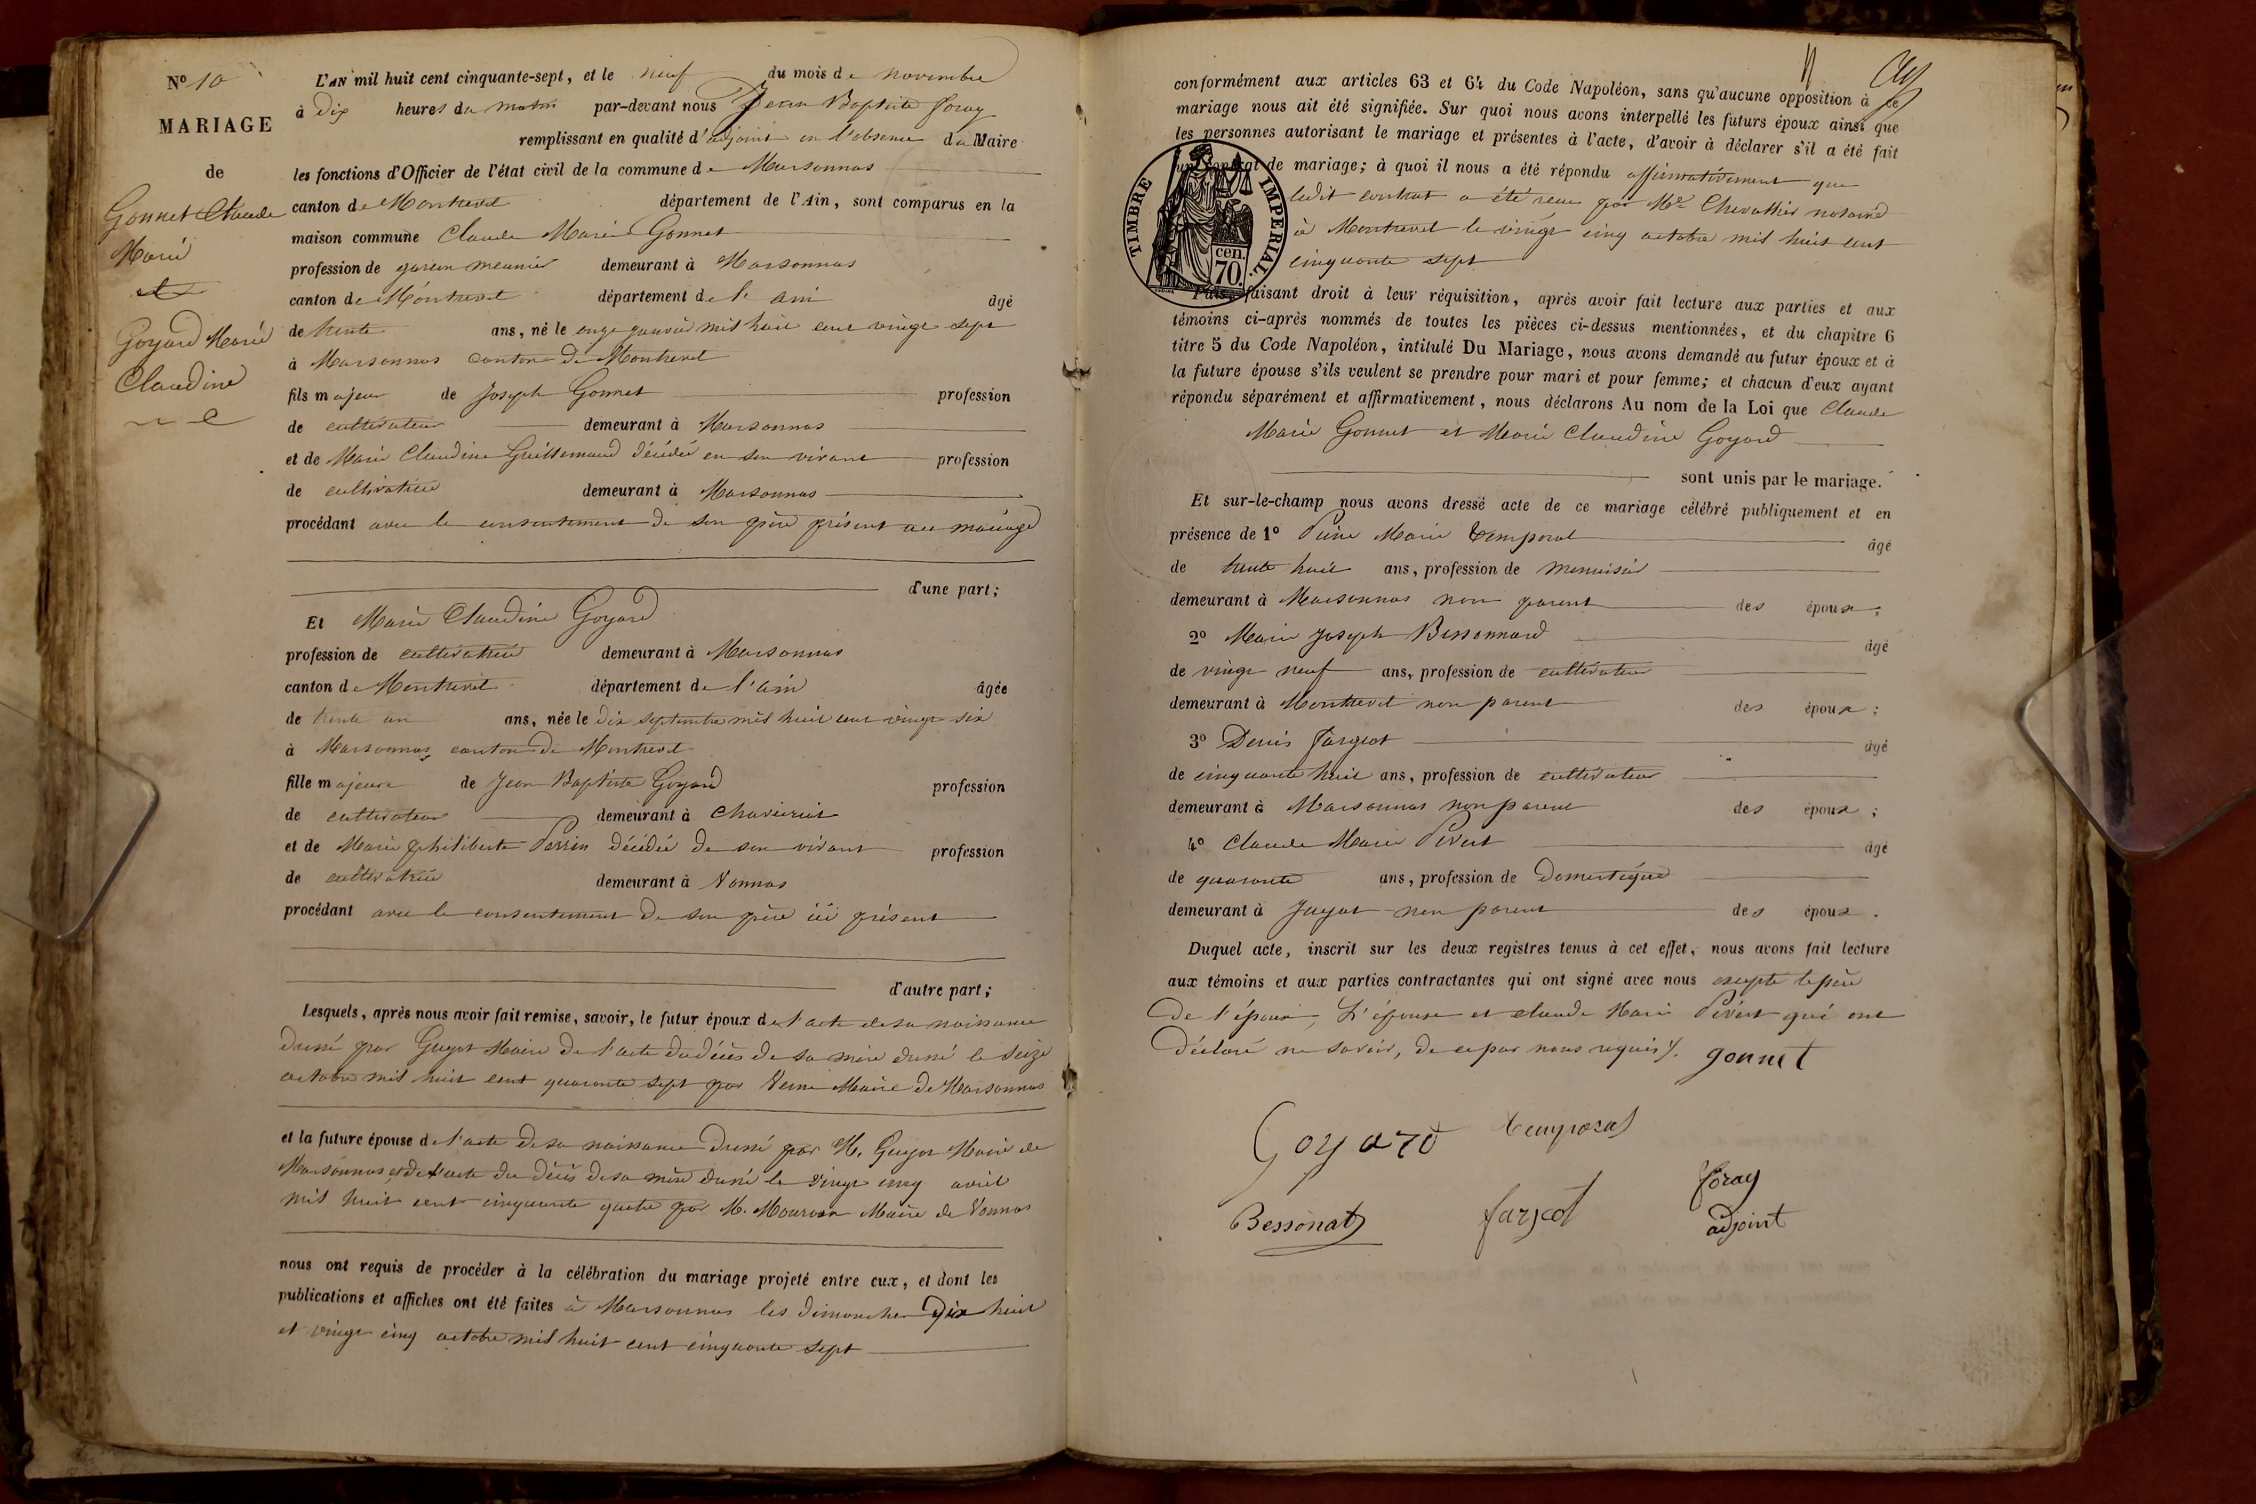 Nº 10
MARIAGE
de
Gonnet Claude
Marie
et
Goyard Marie
Claudine
L'AN mil huit cent cinquante-sept, et le neuf du mois de novembre
à dix heures du matin par-devant nous Jean Baptiste Foray
remplissant en qualité d'adjoint en l'absence du Maire
les fonctions d'Officier de l'état civil de la commune de Marsonnas
canton de Montrevel département de l'Ain, sont comparus en la
maison commune Claude Marie Gonnet
profession de garçon meunier demeurant à Marsonnas
canton de Montrevel département de l'ain âgé
de trente ans, né le onze janvier mil huit cent vingt sept
à Marsonnas canton de Montrevel
fils majeur de Joseph Gonnet profession
de cultivateur demeurant à Marsonnas
et de Marie Claudine Guillemaud décédée en son vivant profession
de cultivatrice demeurant à Marsonnas
procédant avec le consentement de son père présent au mariage
d'une part;
Et Marie Claudine Goyard
profession de cultivatrice demeurant à Marsonnas
canton de Montrevel département de l'ain âgée
de trente un ans, née le dix septembre mil huit cent vingt six
à Marsonnas canton de Montrevel
fille majeure de Jean Baptiste Goyard profession
de cultivateur demeurant à Chaveyriat
et de Marie philiberte Perrin décédée de son vivant profession
de cultivatrice demeurant à Vonnas
procédant avec le consentement de son père ici présent
d'autre part;
Lesquels, après nous avoir fait remise, savoir, le futur époux de l'acte de sa naissance
dressé par Guyot Maire de l'acte du décès de sa mère dressé le seize
octobre mil huit cent quarante sept par Verne Maire de Marsonnas
et la future épouse de l'acte de sa naissance dressé par M. Guyot Maire de
Marsonnas et de l'acte du décès de sa mère dressé le vingt cinq avril
mil huit cent cinquante quatre par M. Maire de Vonnas
nous ont requis de procéder à la célébration du mariage projeté entre eux, et dont les
publications et affiches ont été faites à Marsonnas les dimanches dix huit
et vingt cinq octobre mil huit cent cinquante sept
conformément aux articles 63 et 64 du Code Napoléon, sans qu'aucune opposition à ce
mariage nous ait été signifiée. Sur quoi nous avons interpellé les futurs époux ainsi que
les personnes autorisant le mariage et présentes à l'acte, d'avoir à déclarer s'il a été fait
un contrat de mariage; à quoi il nous a été répondu affirmativement que
ledit contrat a été reçu par Me Chevallier notaire
à Montrevel le vingt cinq octobre mil huit cent
cinquante sept
TIMBRE IMPÉRIAL.
cen.
70.
Puis, faisant droit à leur réquisition, après avoir fait lecture aux parties et aux
témoins ci-après nommés de toutes les pièces ci-dessus mentionnées, et du chapitre 6
titre 5 du Code Napoléon, intitulé Du Mariage, nous avons demandé au futur époux et à
la future épouse s'ils veulent se prendre pour mari et pour femme; et chacun d'eux ayant
répondu séparément et affirmativement, nous déclarons Au nom de la Loi que Claude
Marie Gonnet et Marie Claudine Goyard
sont unis par le mariage.
Et sur-le-champ nous avons dressé acte de ce mariage célébré publiquement et en
présence de 1º Pierre Marie Temporal âgé
de trente huit ans, profession de menuisier
demeurant à Marsonnas non parent des époux;
2º Marie Joseph Bessonnard âgé
de vingt neuf ans, profession de cultivateur
demeurant à Montrevel non parent des époux;
3º Denis Fargeot âgé
de cinquante huit ans, profession de cultivateur
demeurant à Marsonnas non parent des époux;
4º Claude Marie Pivert âgé
de quarante ans, profession de Domestique
demeurant à Jayat non parent des époux.
Duquel acte, inscrit sur les deux registres tenus à cet effet, nous avons fait lecture
aux témoins et aux parties contractantes qui ont signé avec nous excepté le père
de l'époux, L'épouse et claude Marie Pivert qui ont
déclaré ne savoir, de ce par nous requis. gonnet
Goyard temporal
foray
Bessonat fargeot adjoint